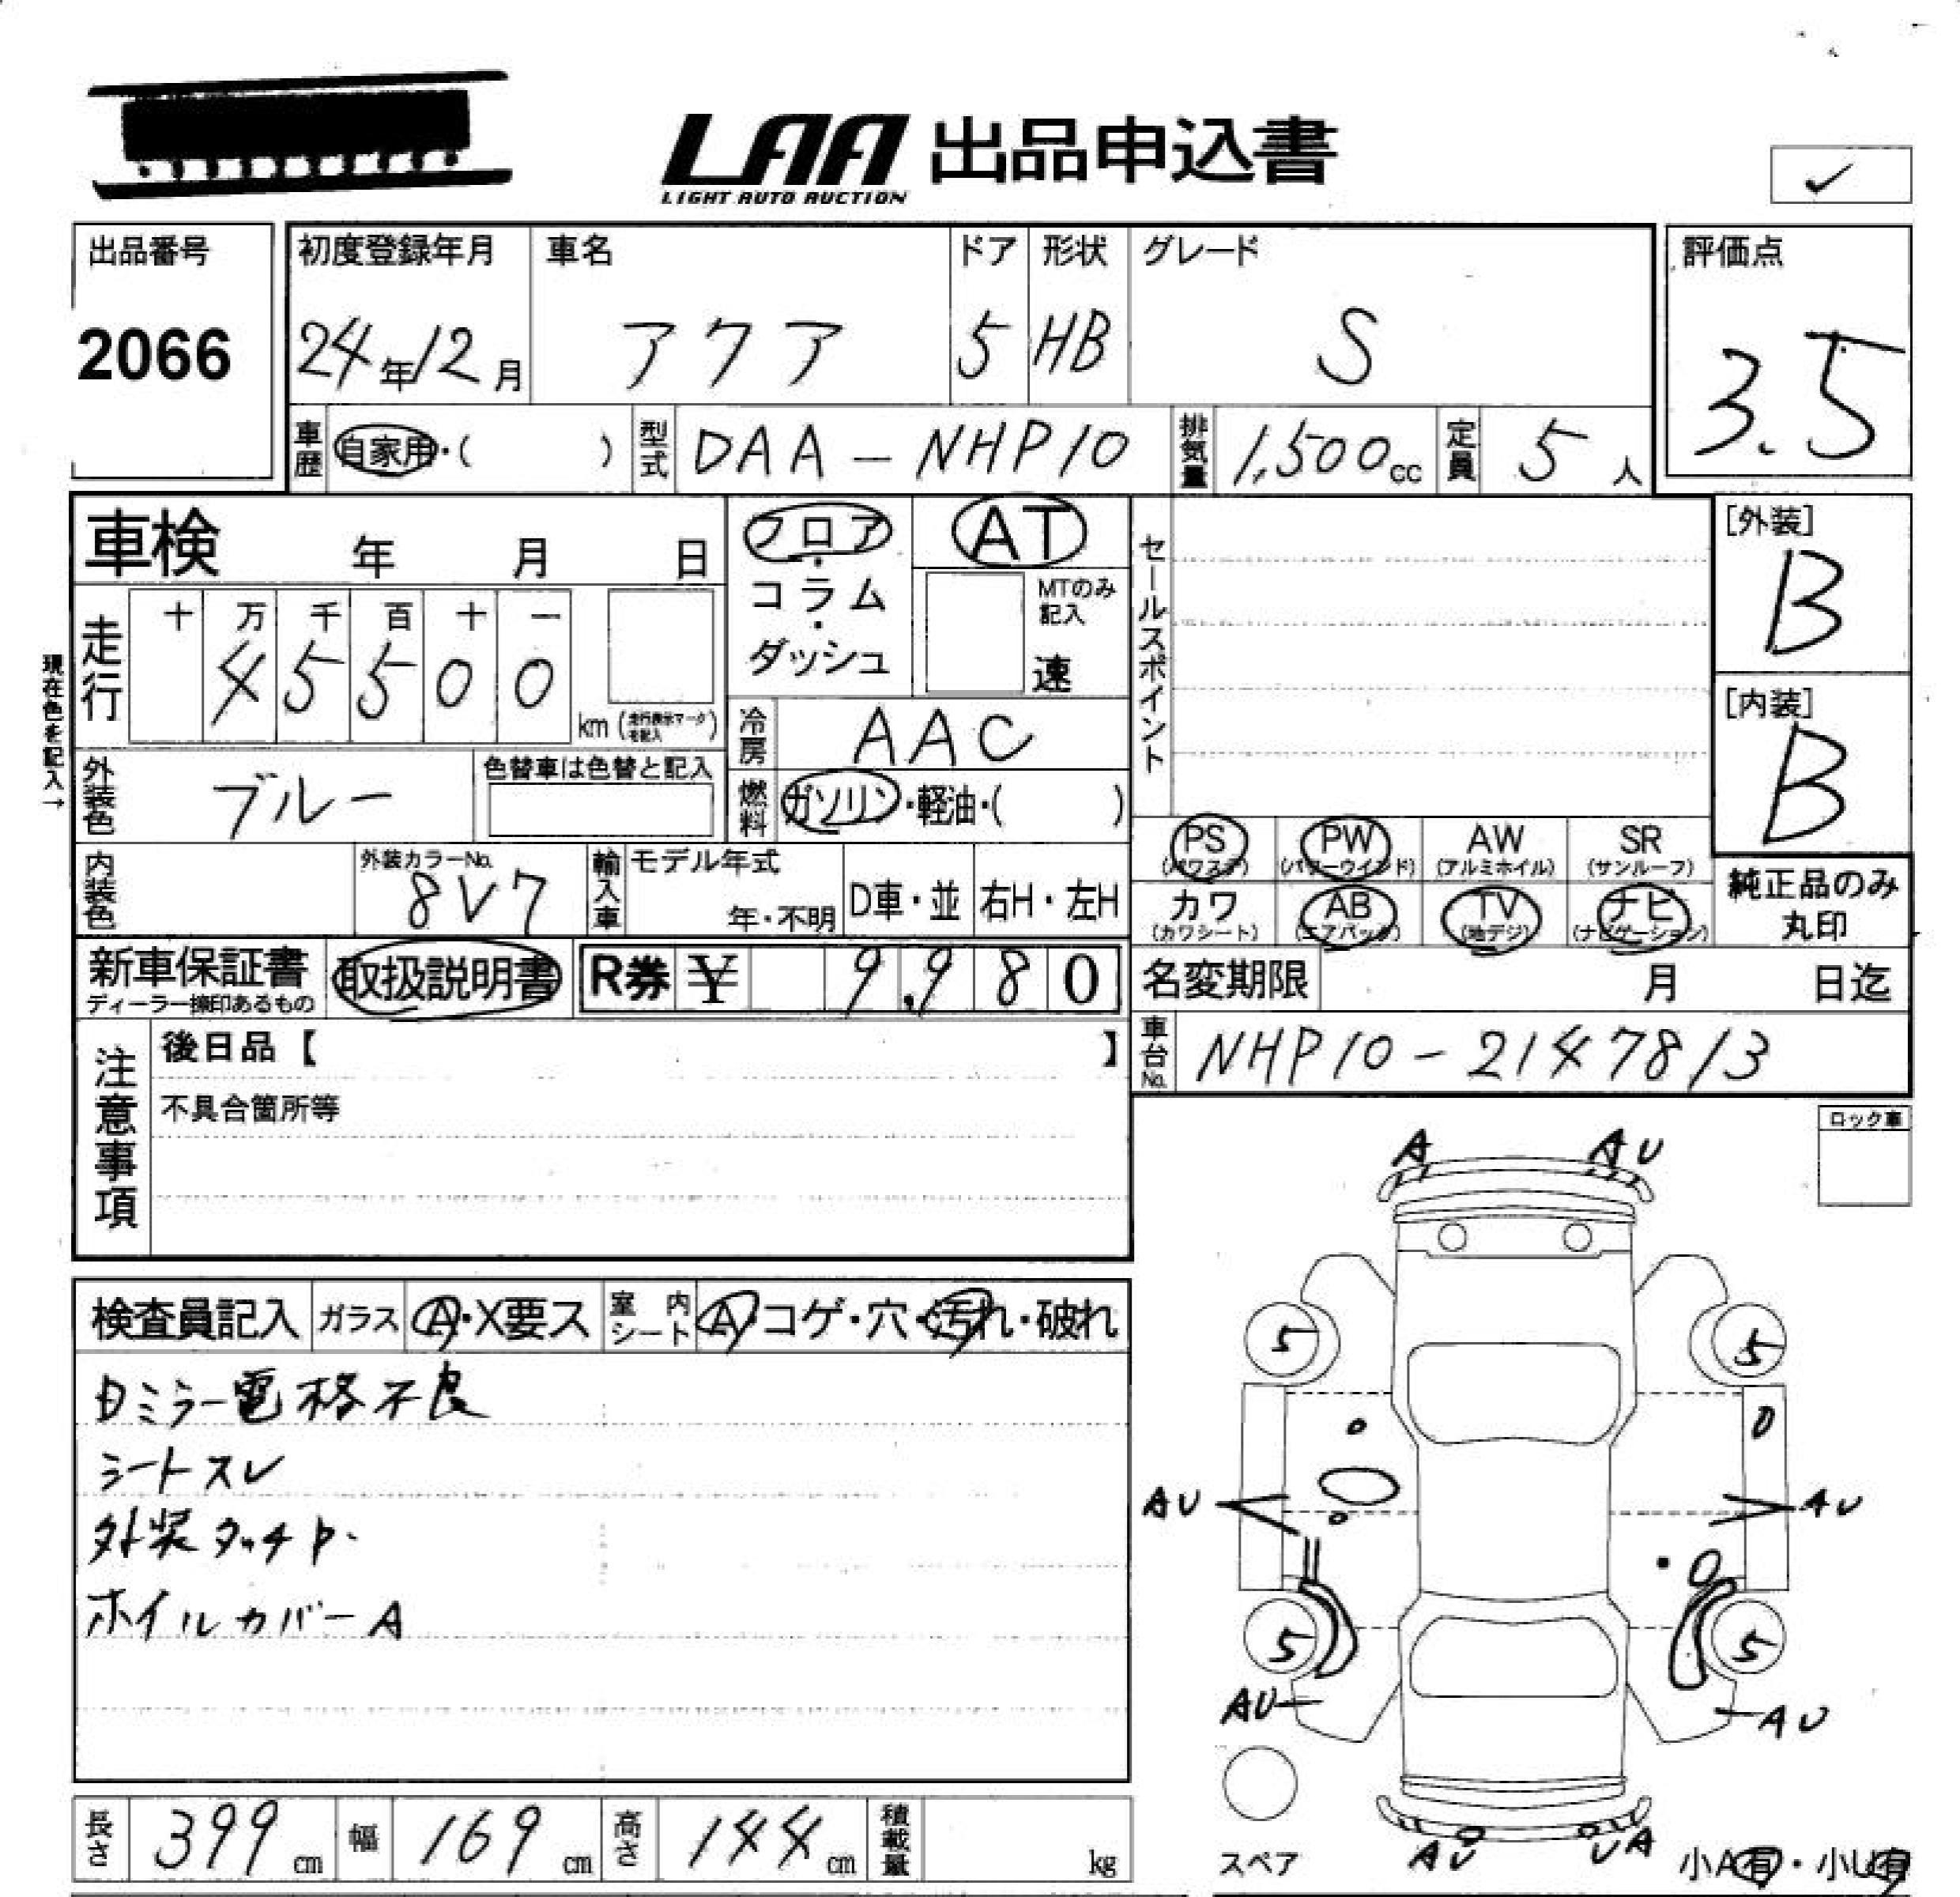 LAA 出品申込書
LIGHT AUTO AUCTION
出品番号
2066
初度登録年月 車名 ドア 形状 グレード
24年12月 アクア 5 HB S
評価点
3.5
車歴 自家用・( ) 型式 DAA-NHP10 排気量 1,500cc 定員 5人
車検 年 月 日
フロア・コラム・ダッシュ
AT
MTのみ記入
速
セールスポイント
[外装]
B
[内装]
B
現在色を記入→
走行
十 万 千 百 十 一
4 5 5 0 0
km (走行表示マークを記入)
冷房 AAC
外装色 ブルー
色替車は色替と記入
燃料 ガソリン・軽油・( )
PS AW PW SR
(パワステ) (パワーウインド) (アルミホイル) (サンルーフ)
カワ AB TV ナビ
(カワシート) (エアバック) (地デジ) (ナビゲーション)
純正品のみ
丸印
内装色
外装カラーNo.
8V7
輸入車
モデル年式
年・不明
D車・並
右H・左H
新車保証書
ディーラー捺印あるもの
取扱説明書
R券 ¥ 9,980
名変期限 月 日迄
車台No. NHP10-2147813
注意事項
後日品【 】
不具合箇所等
ロック車
検査員記入 ガラス A・X要ス 室内シート A・コゲ・穴・汚れ・破れ
ミラー電格不良
シートスレ
外装タッチP.
ホイルカバーA
A AU
5 5
AU AU
5 5
AU AU
AU UA
スペア
小A有・小U有
長さ 399cm 幅 169cm 高さ 144cm 積載量 kg